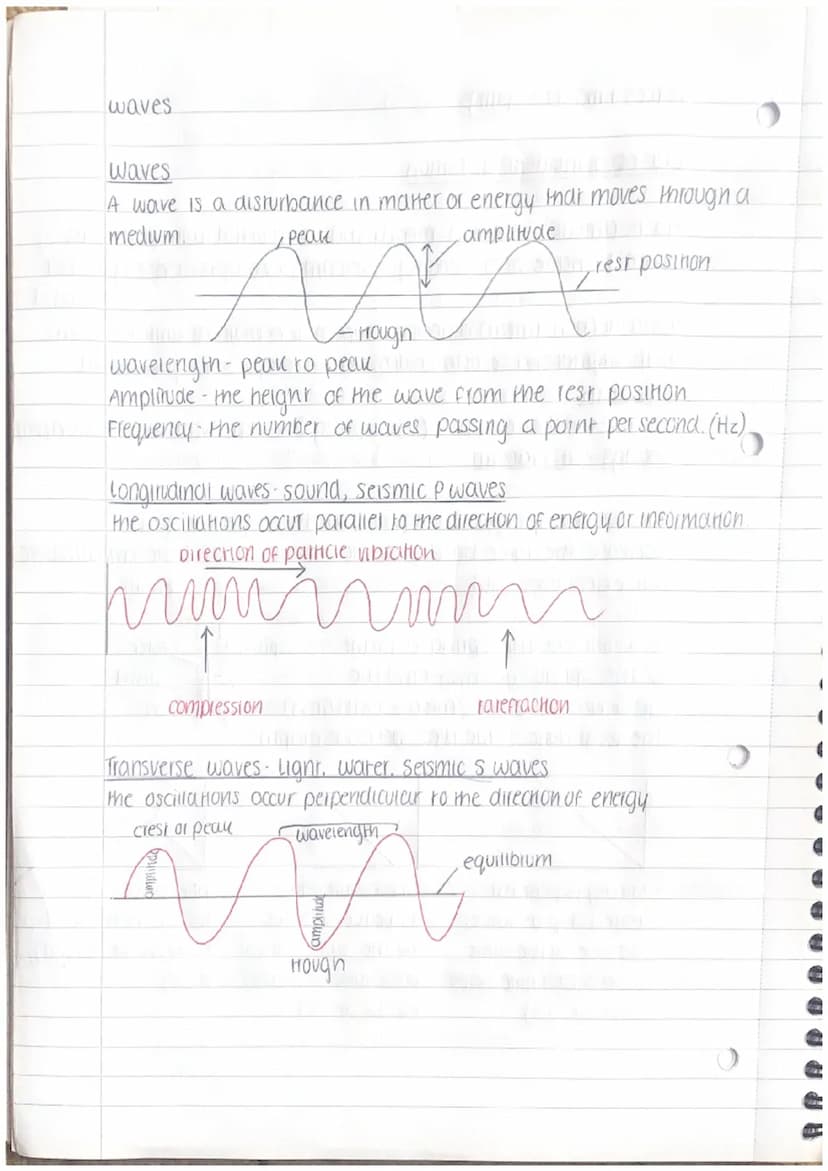 waves
waves
A wave is a disturbance in matter or energy that moves through a
medium.
peak
amplitude
rest position
trough
wavelength - peak to peak
Amplitude - the height of the wave from the rest position
Frequency - the number of waves passing a point per second. (Hz)
Longitudinal waves - sound, seismic P waves
the oscillations occur parallel to the direction of energy or information
Direction of particle vibration
compression
rarefraction
Transverse waves - Light, water, seismic S waves
the oscillations occur perpendicular to the direction of energy
crest or peak
wavelength
amplitude
equilibium
amplitude
trough